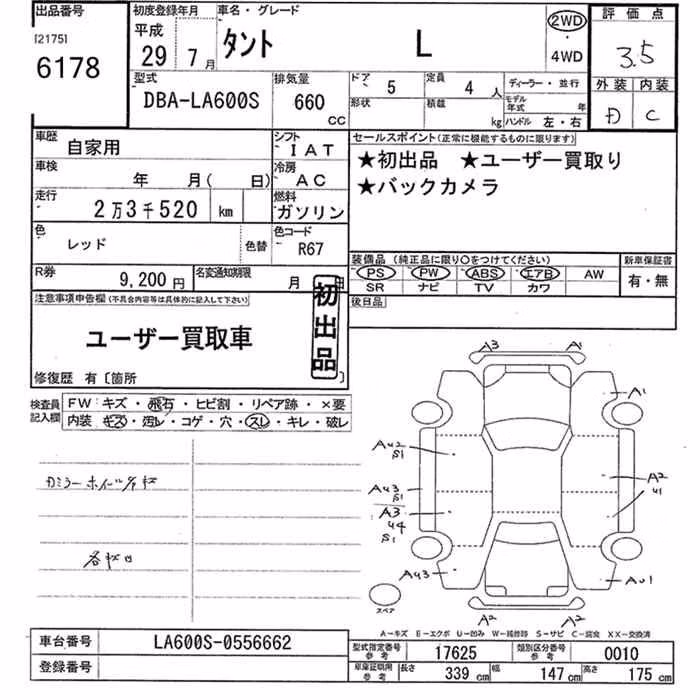 出品番号
[2175]
6178
初度登録年月
平成
29年 7月
車名・グレード
タント L
2WD
・
4WD
評価点
3.5
外装 内装
D C
型式
DBA-LA600S
排気量
660
CC
ドア 5
定員 4 人
ディーラー・並行
形状
積載 kg
モデル年式 年
ハンドル 左・右
車歴 自家用
シフト IAT
車検 年 月( 日)
冷房 AC
走行 2万3千520 km
燃料 ガソリン
色 レッド 色替
色コード R67
R券 9,200円
名変通知期限 月 日
セールスポイント(正常に機能するものに限ります)
★初出品 ★ユーザー買取り
★バックカメラ
装備品(純正品に限り〇をつけてください)
新車保証書
PS PW ABS エアB AW
有・無
SR ナビ TV カワ
後日品
注意事項申告欄(不具合内容等は具体的に記入して下さい)
初出品
ユーザー買取車
修復歴 有〔箇所
検査員記入欄
FW:キズ・飛石・ヒビ割・リペア跡・×要
内装 キズ・汚レ・コゲ・穴・スレ・キレ・破レ
A3 A1
A1
AU2
S1
A2
U1
AU3
S1
A3
U4
S1
AU3
AU1
スペア
A2 A2
A－キズ E－エクボ U－凹み W－補修跡 S－サビ C－腐食 XX－交換済
車台番号 LA600S-0556662
登録番号
型式指定番号 参考 17625
類別区分番号 参考 0010
車庫証明用 参考 長さ 339 cm 幅 147 cm 高さ 175 cm